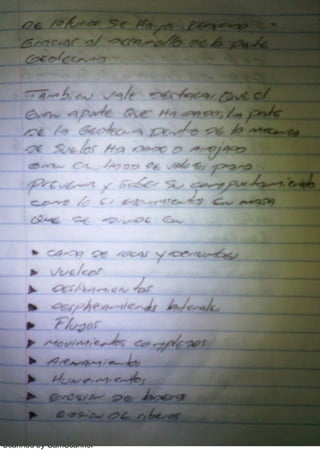 DE lo futuro se Haya
Gracias al desarrollo de la parte
Geotecnia
También vale destacar que el
Gran aporte QUE HA DADO, la parte
DE la Geotecnia Dentro de la mecanica
DE Suelos HA DADO o Arrojado
Gran Cantidad DE valores para
prevenir y saber su comportamiento
como lo es movimientos en masa
QUE SE divide en
▸ CAIDA DE rocas y derrumbes
▸ Vuelcos
▸ Deslizamientos
▸ Desplazamientos laterales
▸ Flujos
▸ movimientos complejos
▸ Arenamientos
▸ Hundimientos
▸ Erosion DE laderas
▸ Erosion DE riberas
Scanned by CamScanner